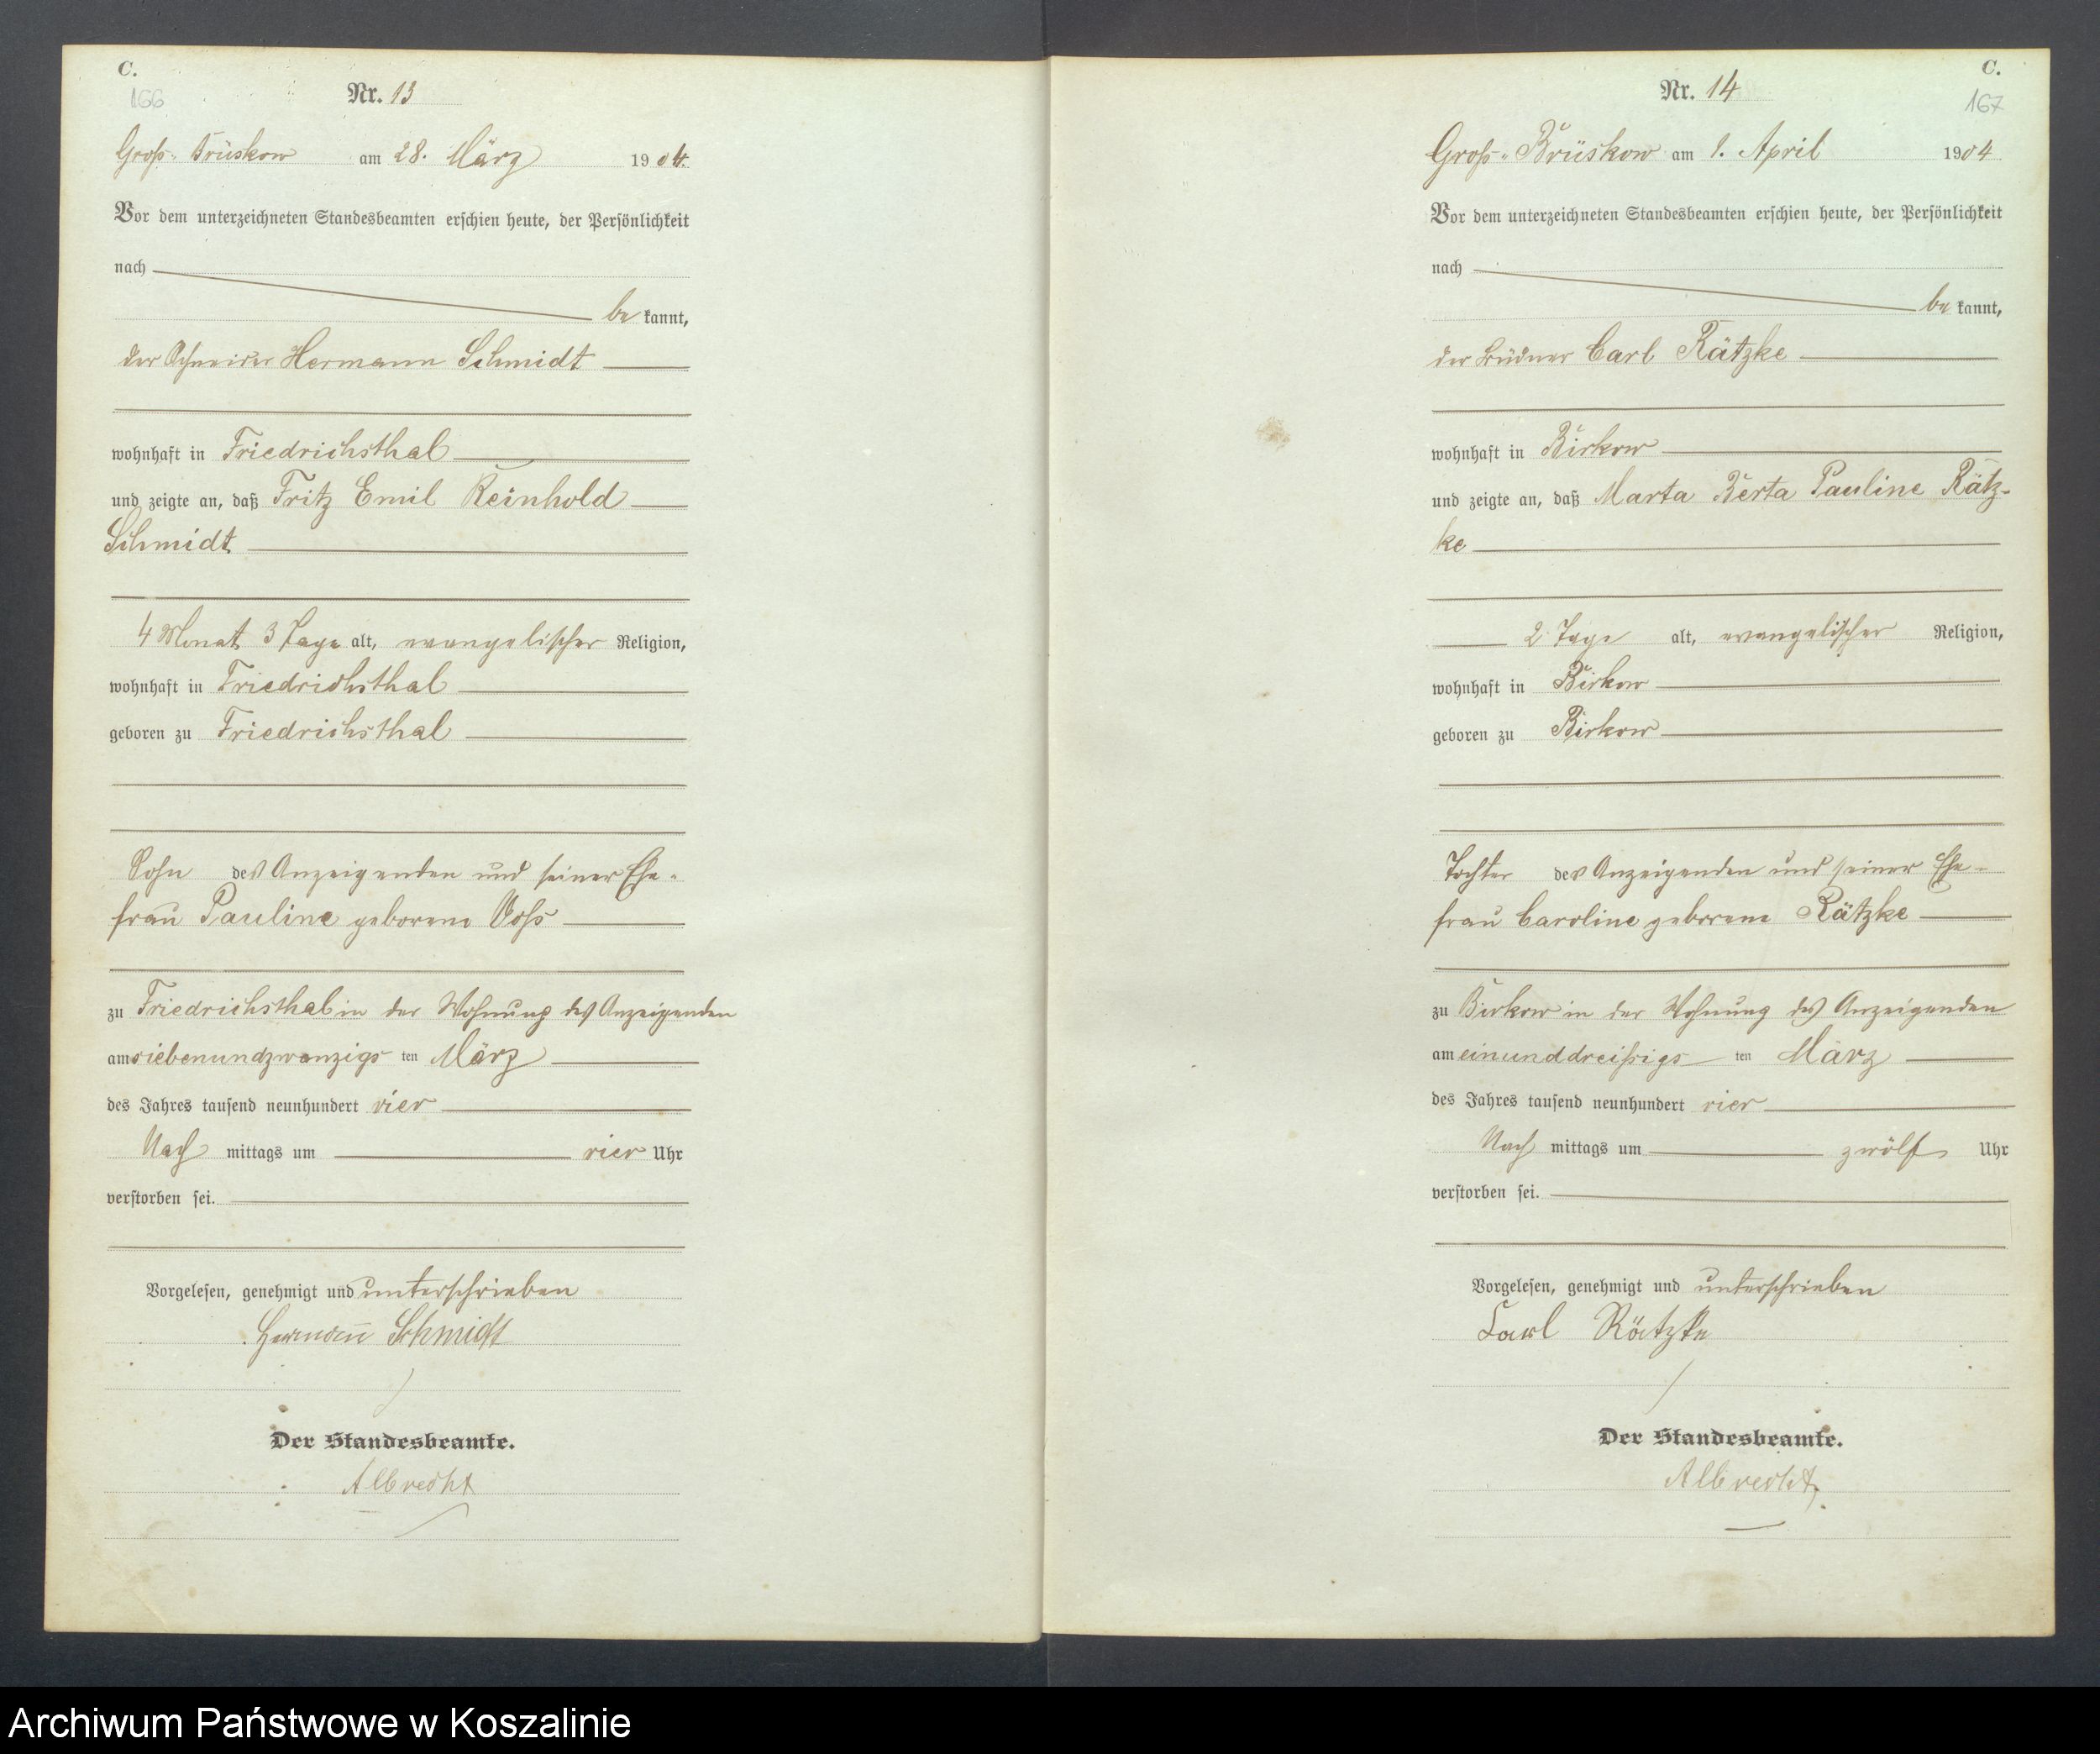 C.
166
Nr. 13
Groß-Brüskow am 28. März 1904.
Vor dem unterzeichneten Standesbeamten erschien heute, der Persönlichkeit
nach
be kannt,
der Schneider Hermann Schmidt
wohnhaft in Friedrichsthal
und zeigte an, daß Fritz Emil Reinhold
Schmidt
4 Monat 3 Tage alt, evangelischer Religion,
wohnhaft in Friedrichsthal
geboren zu Friedrichsthal
Sohn des Anzeigenden und seiner Ehe-
frau Pauline geborene Voss
zu Friedrichsthal in der Wohnung des Anzeigenden
am siebenundzwanzigs ten März
des Jahres tausend neunhundert vier
Nach mittags um vier Uhr
verstorben sei.
Vorgelesen, genehmigt und unterschrieben
Hermann Schmidt
Der Standesbeamte.
Albrecht
C.
167
Nr. 14
Groß-Brüskow am 1. April 1904
Vor dem unterzeichneten Standesbeamten erschien heute, der Persönlichkeit
nach
be kannt,
der Büdner Carl Rätzke
wohnhaft in Birkow
und zeigte an, daß Marta Berta Pauline Rätz-
ke
2 Tage alt, evangelischer Religion,
wohnhaft in Birkow
geboren zu Birkow
Tochter des Anzeigenden und seiner Ehe-
frau Caroline geborene Rätzke
zu Birkow in der Wohnung des Anzeigenden
am einunddreißigs ten März
des Jahres tausend neunhundert vier
Nach mittags um zwölf Uhr
verstorben sei.
Vorgelesen, genehmigt und unterschrieben
Carl Rätzke
Der Standesbeamte.
Albrecht
Archiwum Państwowe w Koszalinie